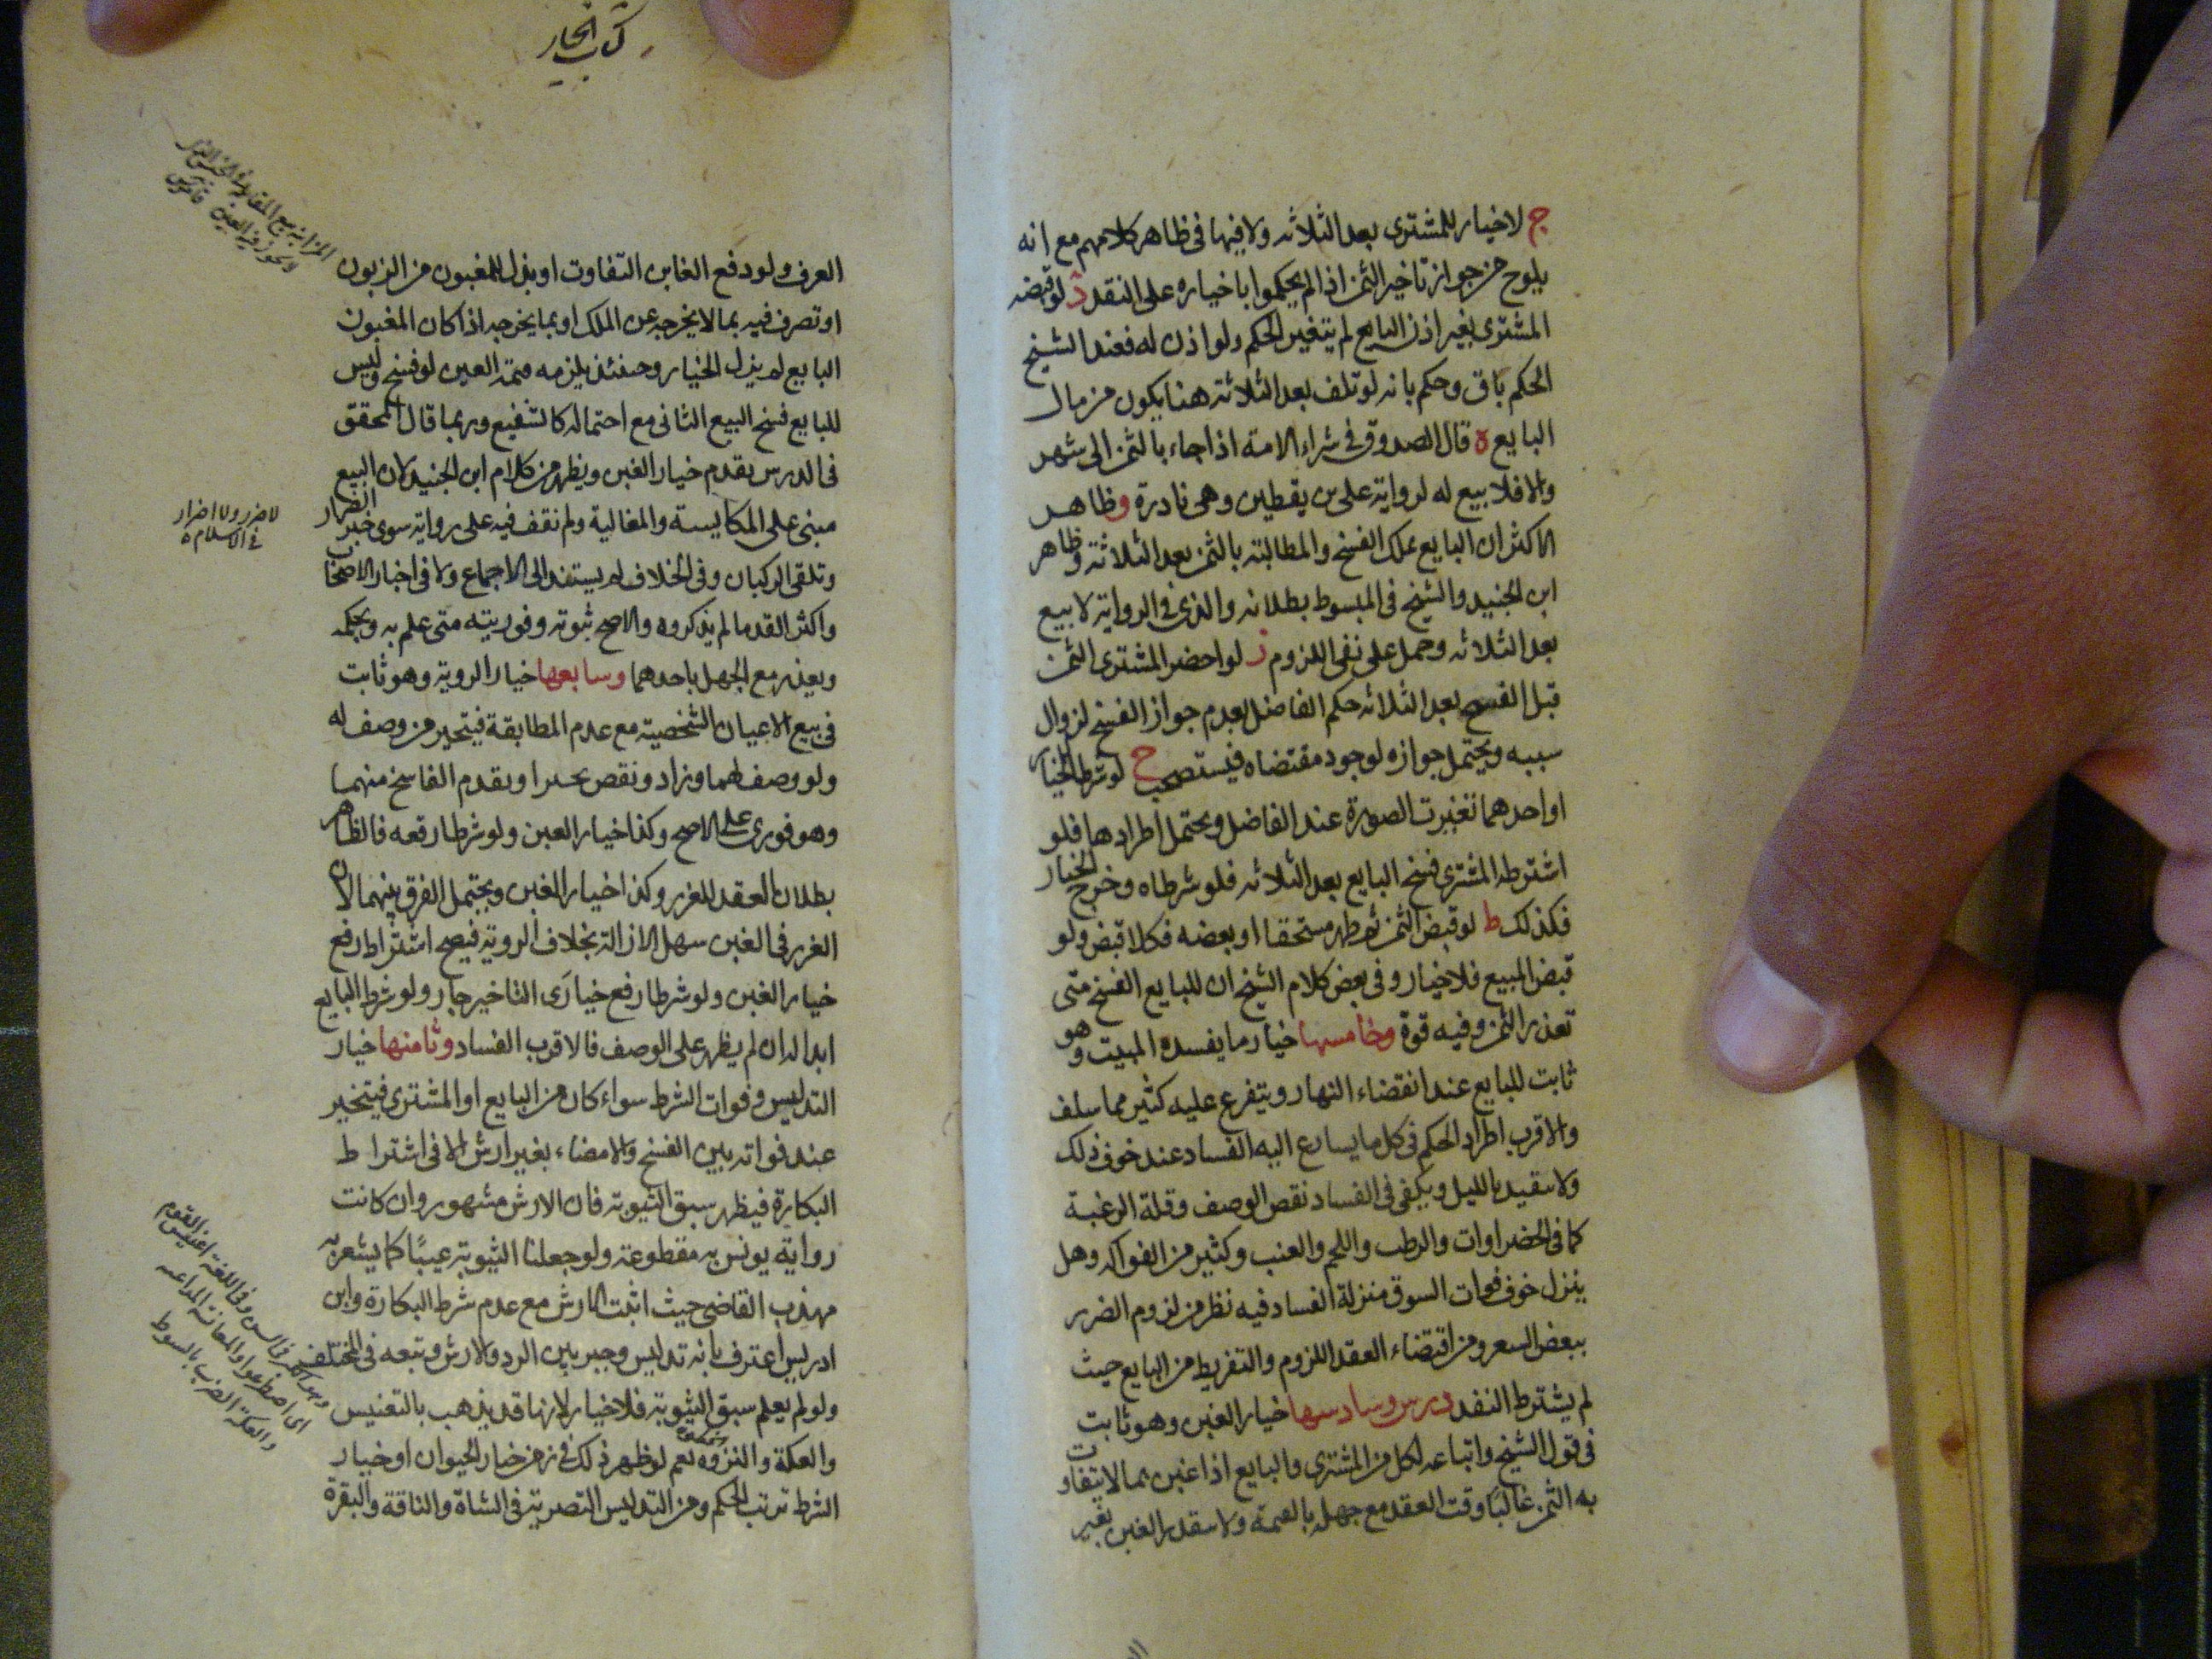 ج لا خيار للمشترى بعد الثلاثه ولا فيها فى ظاهر كلامهم مع انه
يلوح من جواز تاخير الثمن اذا لم يحكموا باخياره على النقد د لو قبضه
المشترى بغير اذن البايع لم يتغير الحكم ولو اذن له فعند الشيخ
الحكم باق وحكم بانه لو تلف بعد الثلاثة هنا يكون من مال
البايع ه قال الصدوق فى شراء الامة اذا جاء بالثمن الى شهر
والا فلا بيع له لرواية على بن يقطين وهى نادرة و ظاهر
الاكثر ان البايع يملك الفسخ والمطالبة بالثمن بعد الثلاثة وظاهر
ابن الجنيد والشيخ فى المبسوط بطلانه والذى فى الرواية لا بيع
بعد الثلاثه وحمل على نفى اللزوم ز لو احضر المشترى الثمن
قبل الفسخ بعد الثلاثه حكم الفاضل بعدم جواز الفسخ لزوال
سببه ويحتمل جوازه لوجود مقتضاه فيستصحب ح لو شرطا الخيار
او احدهما تغيرت الصورة عند الفاضل ويحتمل اطرادها فلو
اشترطه المشترى فسخ البايع بعد الثلاثه فلو شرطاه وخرج الخيار
فكذلك ط لو قبض الثمن ثم ظهر مستحقا او بعضه فكلا قبض ولو
قبض المبيع فلا خيار وفى بعض كلام الشيخ ان للبايع الفسخ متى
تعذر الثمن وفيه قوة وخامسها خيار ما يفسده المبيت وهو
ثابت للبايع عند انقضاء النهار ويتفرع عليه كثير مما سلف
والاقرب اطراد الحكم فى كل ما يسارع اليه الفساد عند خوف ذلك
ولا سقيد بالليل ويكفى فى الفساد نقص الوصف وقلة الرغبة
كما فى الخضراوات والرطب واللحم والعنب وكثير من الفواكه وهل
ينزل خوف فوات السوق منزلة الفساد فيه نظر من لزوم الضرر
ببعض السعر ومن اقتضاء العقد اللزوم والتفريط من البايع حيث
لم يشترط النقد درس وسادسها خيار الغبن وهو ثابت
فى قول الشيخ واتباعه لكل من المشترى والبايع اذا غبن بما لا يتفاوت
به الثمن غالبًا وقت العقد مع جهله بالقيمة ولا سقدر الغبن بغير
كتاب الخيار
العرف ولو دفع الغابن التفاوت او بذل للمغبون من الزبون
او تصرف فيه بما لا يخرجه عن الملك او بما يخرجه اذا كان المغبون
البايع لم يزل الخيار وحينئذ يلزمه قيمة العين لو فسخ وليس
للبايع فسخ البيع الثانى مع احتماله كالشفيع وربما قال المحقق
فى الدرس بعدم خيار الغبن ويظهر من كلام ابن الجنيد لان البيع
مبنى على المكايسة والمغالبة ولم نقف فيه على رواية سوى خبر الضرار
وتلقى الركبان وفى الخلاف لم يستند الى الاجماع ولا فى اخبار الاصحاب
واكثر القدما لم يذكروه والاصح ثبوته وفوريته متى علم به وبحكمه
ويعذر مع الجهل باحدهما وسابعها خيار الروية وهو ثابت
فى بيع الاعيان الشخصية مع عدم المطابقة فيتخير من وصف له
ولو وصف لهما وزاد ونقص تخيرا ويقدم الفاسخ منهما
وهو فورى على الاصح وكذا خيار العين ولو شرطا رفعه فالظاهر
بطلان العقد للغرر وكذا خيار الغبن ويحتمل الفرق بينهما لان
الغرر فى الغبن سهل الازالة بخلاف الروية فيصح اشتراط رفع
خيار الغبن ولو شرطا رفع خيارى التاخير جاز ولو شرط البايع
ابداله ان لم يظهر على الوصف فالاقرب الفساد وثامنها خيار
التدليس وفوات الشرط سواء كان من البايع او المشترى فيتخير
عند فواته بين الفسخ والامضاء بغير ارش الا فى اشتراط
البكارة فيظهر سبق الثيوبة فان الارش مشهور وان كانت
رواية يونس به مقطوعة ولو جعلنا الثيوبة عيبًا كما يشعر به
مهذب القاضى حيث اثبت الارش مع عدم شرط البكارة وابن
ادريس اعترف بانه تدليس وخير بين الرد والارش وتبعه فى المختلف
ولو لم يعلم سبق الثيوبة فلا خيار لانها قد يذهب بالتغنيس
والعكة والنزوه نعم لو ظهر ذلك فى زمن خيار الحيوان او خيار
الشرط ترتب الحكم ومن التدليس التصرية فى الشاة والناقة والبقرة
لا ضرر ولا اضرار
فى الاسلام
والعكة الضرب بالسوط